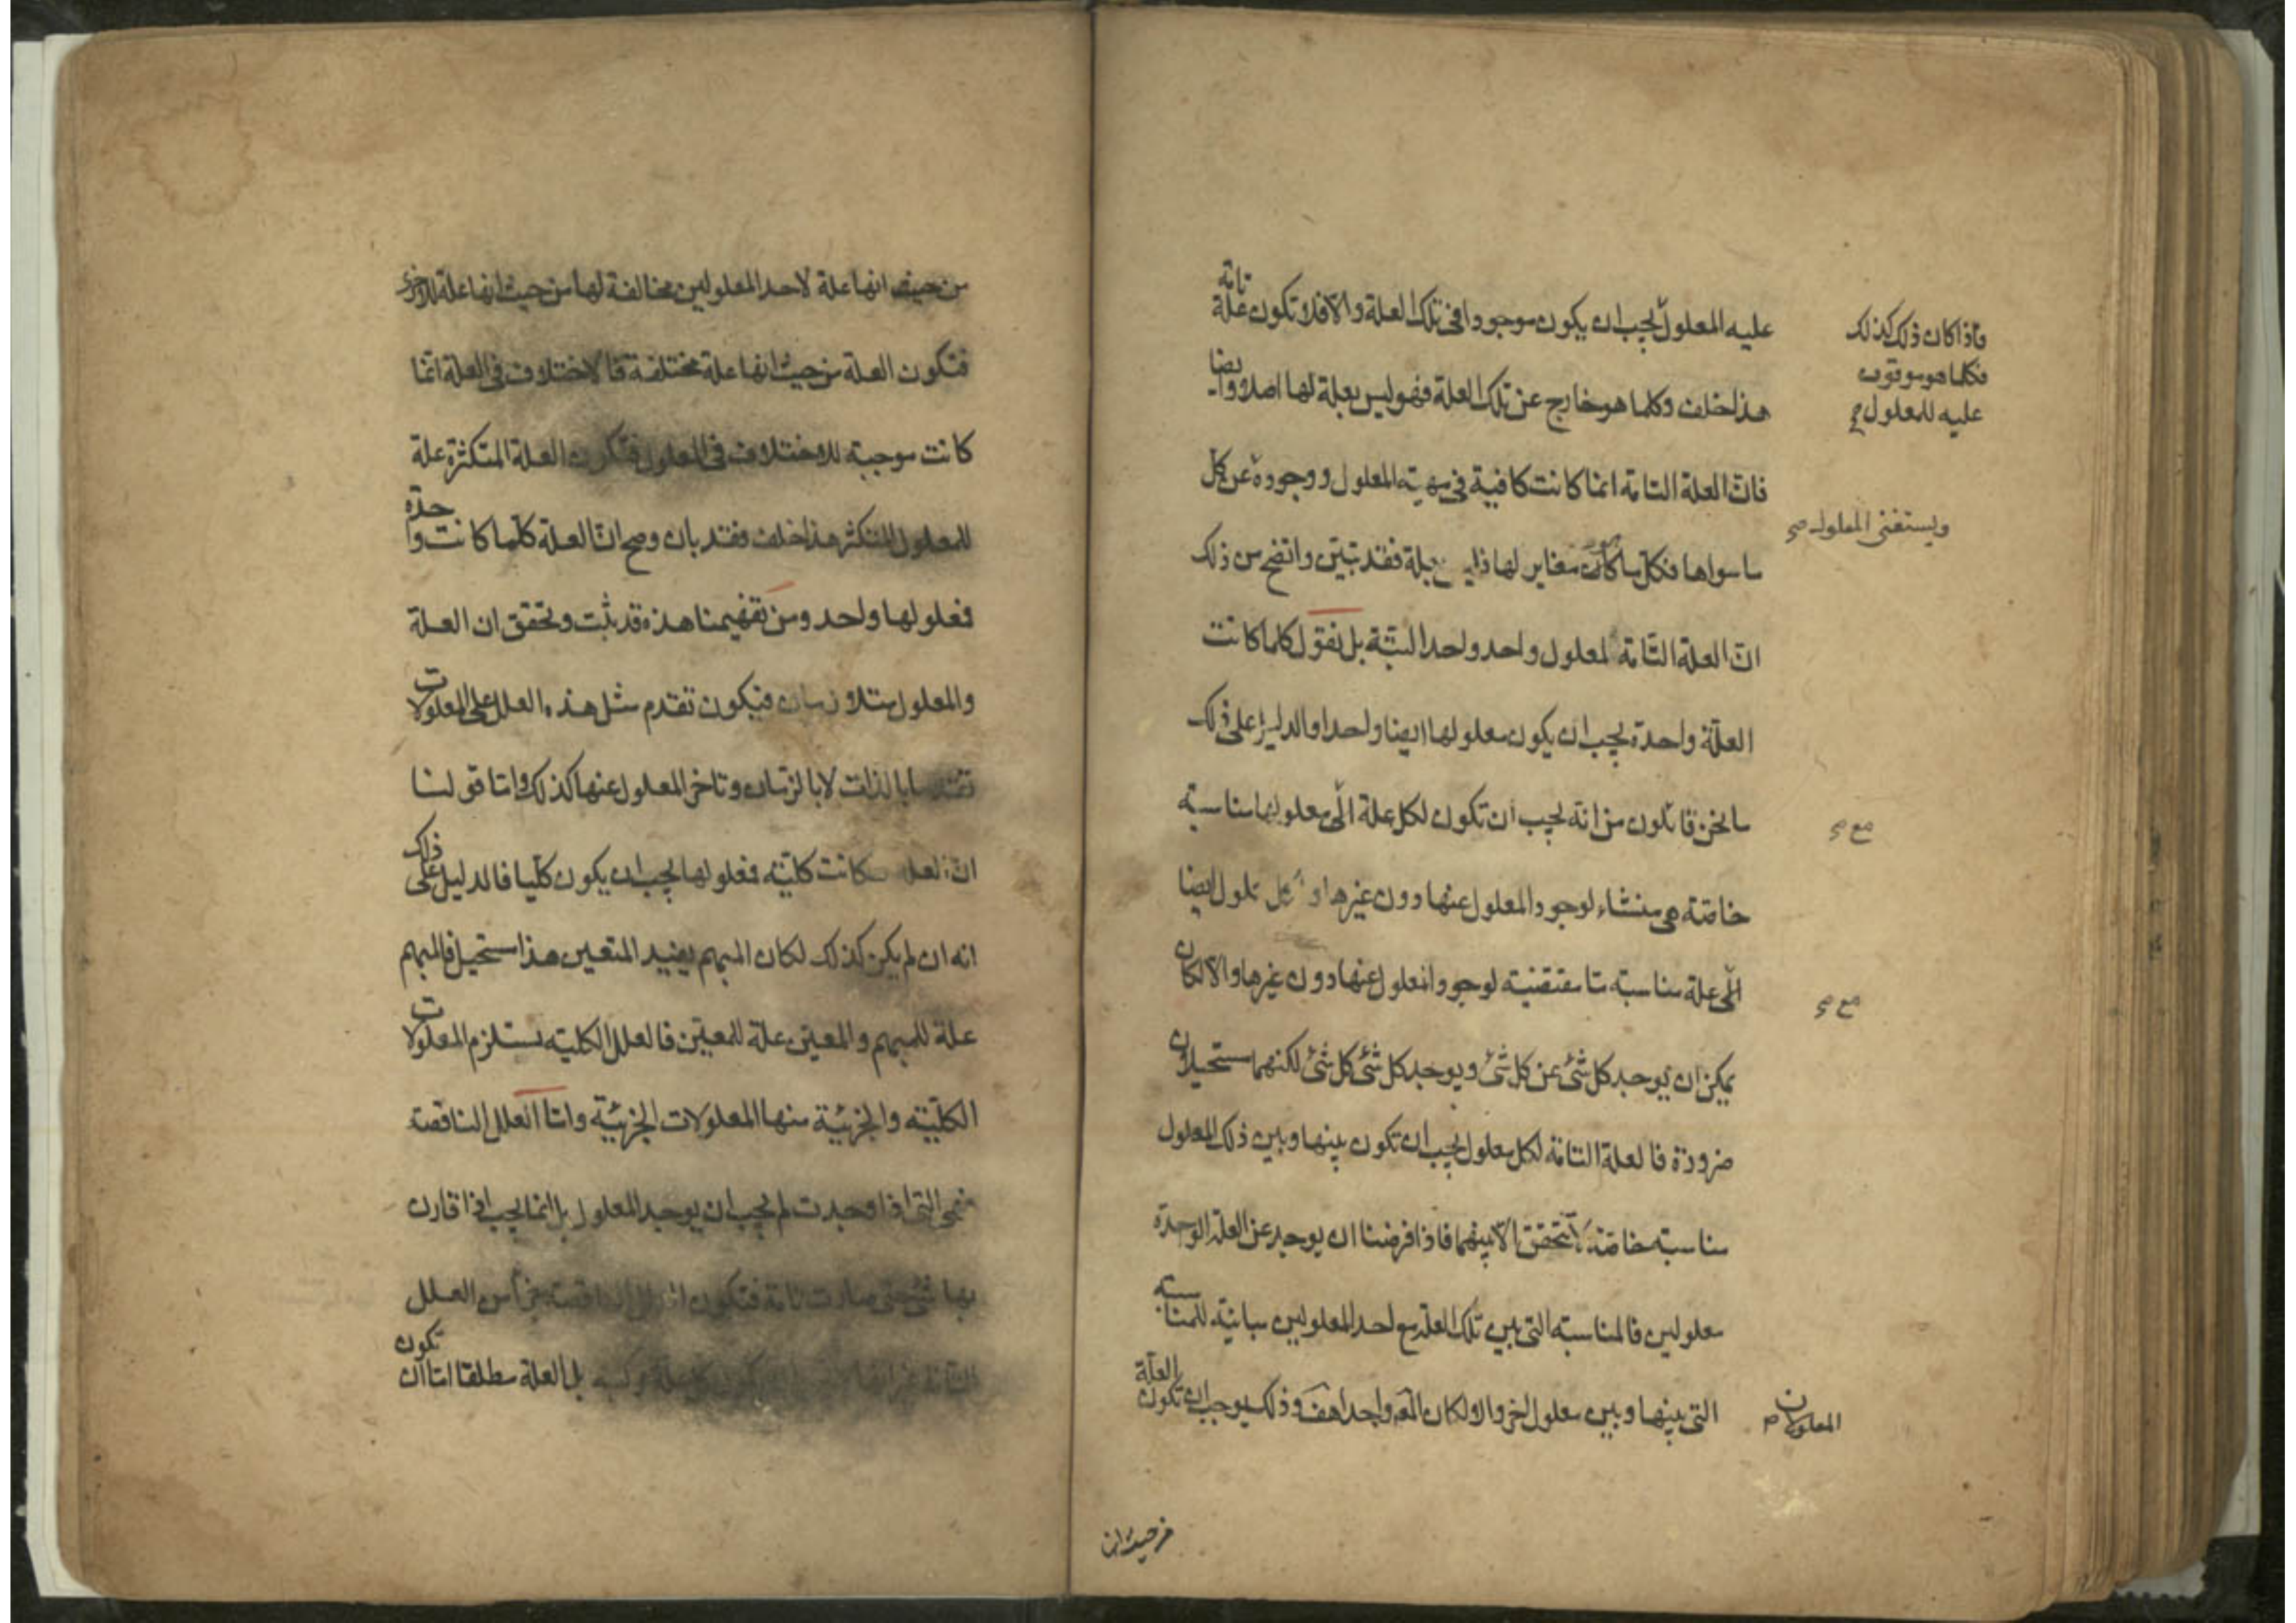 عليه المعلول يجب ان يكون موجودا فى تلك العلة والا فلا تكون علة تامة
هذا خلف وكلما هو خارج عن تلك العلة فهو ليس بعلة لها اصلا وايضا
فان العلة التامة انما كانت كافية فى مهية المعلول ووجوده عن كل
ما سواها فكل ما كان مغاير لها فقد تبين واتضح من ذلك
ان العلة التامة لمعلول واحد واحد البتة بل نقول كلما كانت
العلة واحدة يجب ان يكون معلولها ايضا واحدا والدليل على ذلك
ما نحن قائلون من انه يجب ان تكون لكل علة الى معلولها مناسبة
خاصة هى منشاء لوجود المعلول عنها دون غيرها ايضا
الى علة مناسبة ما مقتضية لوجود المعلول عنها دون غيرها والا لكان
يمكن ان يوجد كل شئ عن كل شئ ويوجد كل شئ كل شئ لكنهما مستحيلان
ضرورة فالعلة التامة لكل معلول يجب ان تكون بينها وبين ذلك المعلول
مناسبة خاصة لا تتحقق الا بينهما فاذا فرضنا ان يوجد عن العلة الواحدة
معلولين فالمناسبة التى بين تلك العلة مع احد المعلولين مباينة للمناسبة
التى بينها وبين معلول اخر والا لكان المعـ واحدا هف وذلك يوجب ان تكون العلة
من حيث انها
فاذا كان ذلك كذلك
فكلما هو موقوف
عليه للمعلول صح
ويستغنى المعلول صح
مع صح
مع صح
المعلولان صح
من حيث انها علة لاحد المعلولين مخالفة لها من حيث انها علة للاخرى
فتكون العلة من حيث انها علة مختلفة فالاختلاف فى العلة انما
كانت موجبة للاختلاف فى المعلول فتكون العلة المتكثرة علة
للمعلول المتكثر هذا خلف فقد بان وصح ان العلة كلما كانت واحدة
فمعلولها واحد ومن تفهيمنا هذه قد ثبت وتحقق ان العلة
والمعلول متلازمان فيكون تقدم مثل هذه العلل على المعلولات
تقدما بالذات لا بالزمان وتاخر المعلول عنها كذلك واما قولنا
ان العلة كانت كلية فمعلولها يجب ان يكون كليا فالدليل على ذلك
انه ان لم يكن كذلك لكان المبهم يفيد المتعين هذا مستحيل فالمبهم
علة للمبهم والمعين علة للمعين فالعلل الكلية تستلزم المعلولات
الكلية والجزئية منها المعلولات الجزئية واما العلل الناقصة
فهى التى اذا وجدت لم يجب ان يوجد المعلول بل انما يجب اذا قارن
بها شئ حتى صارت تامة فتكون العلل الناقصة جزأ من العلل
التامة بل العلة مطلقا اما ان تكون